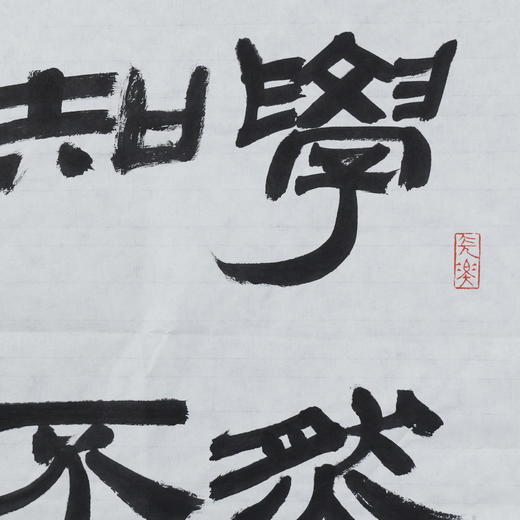 學然
知不